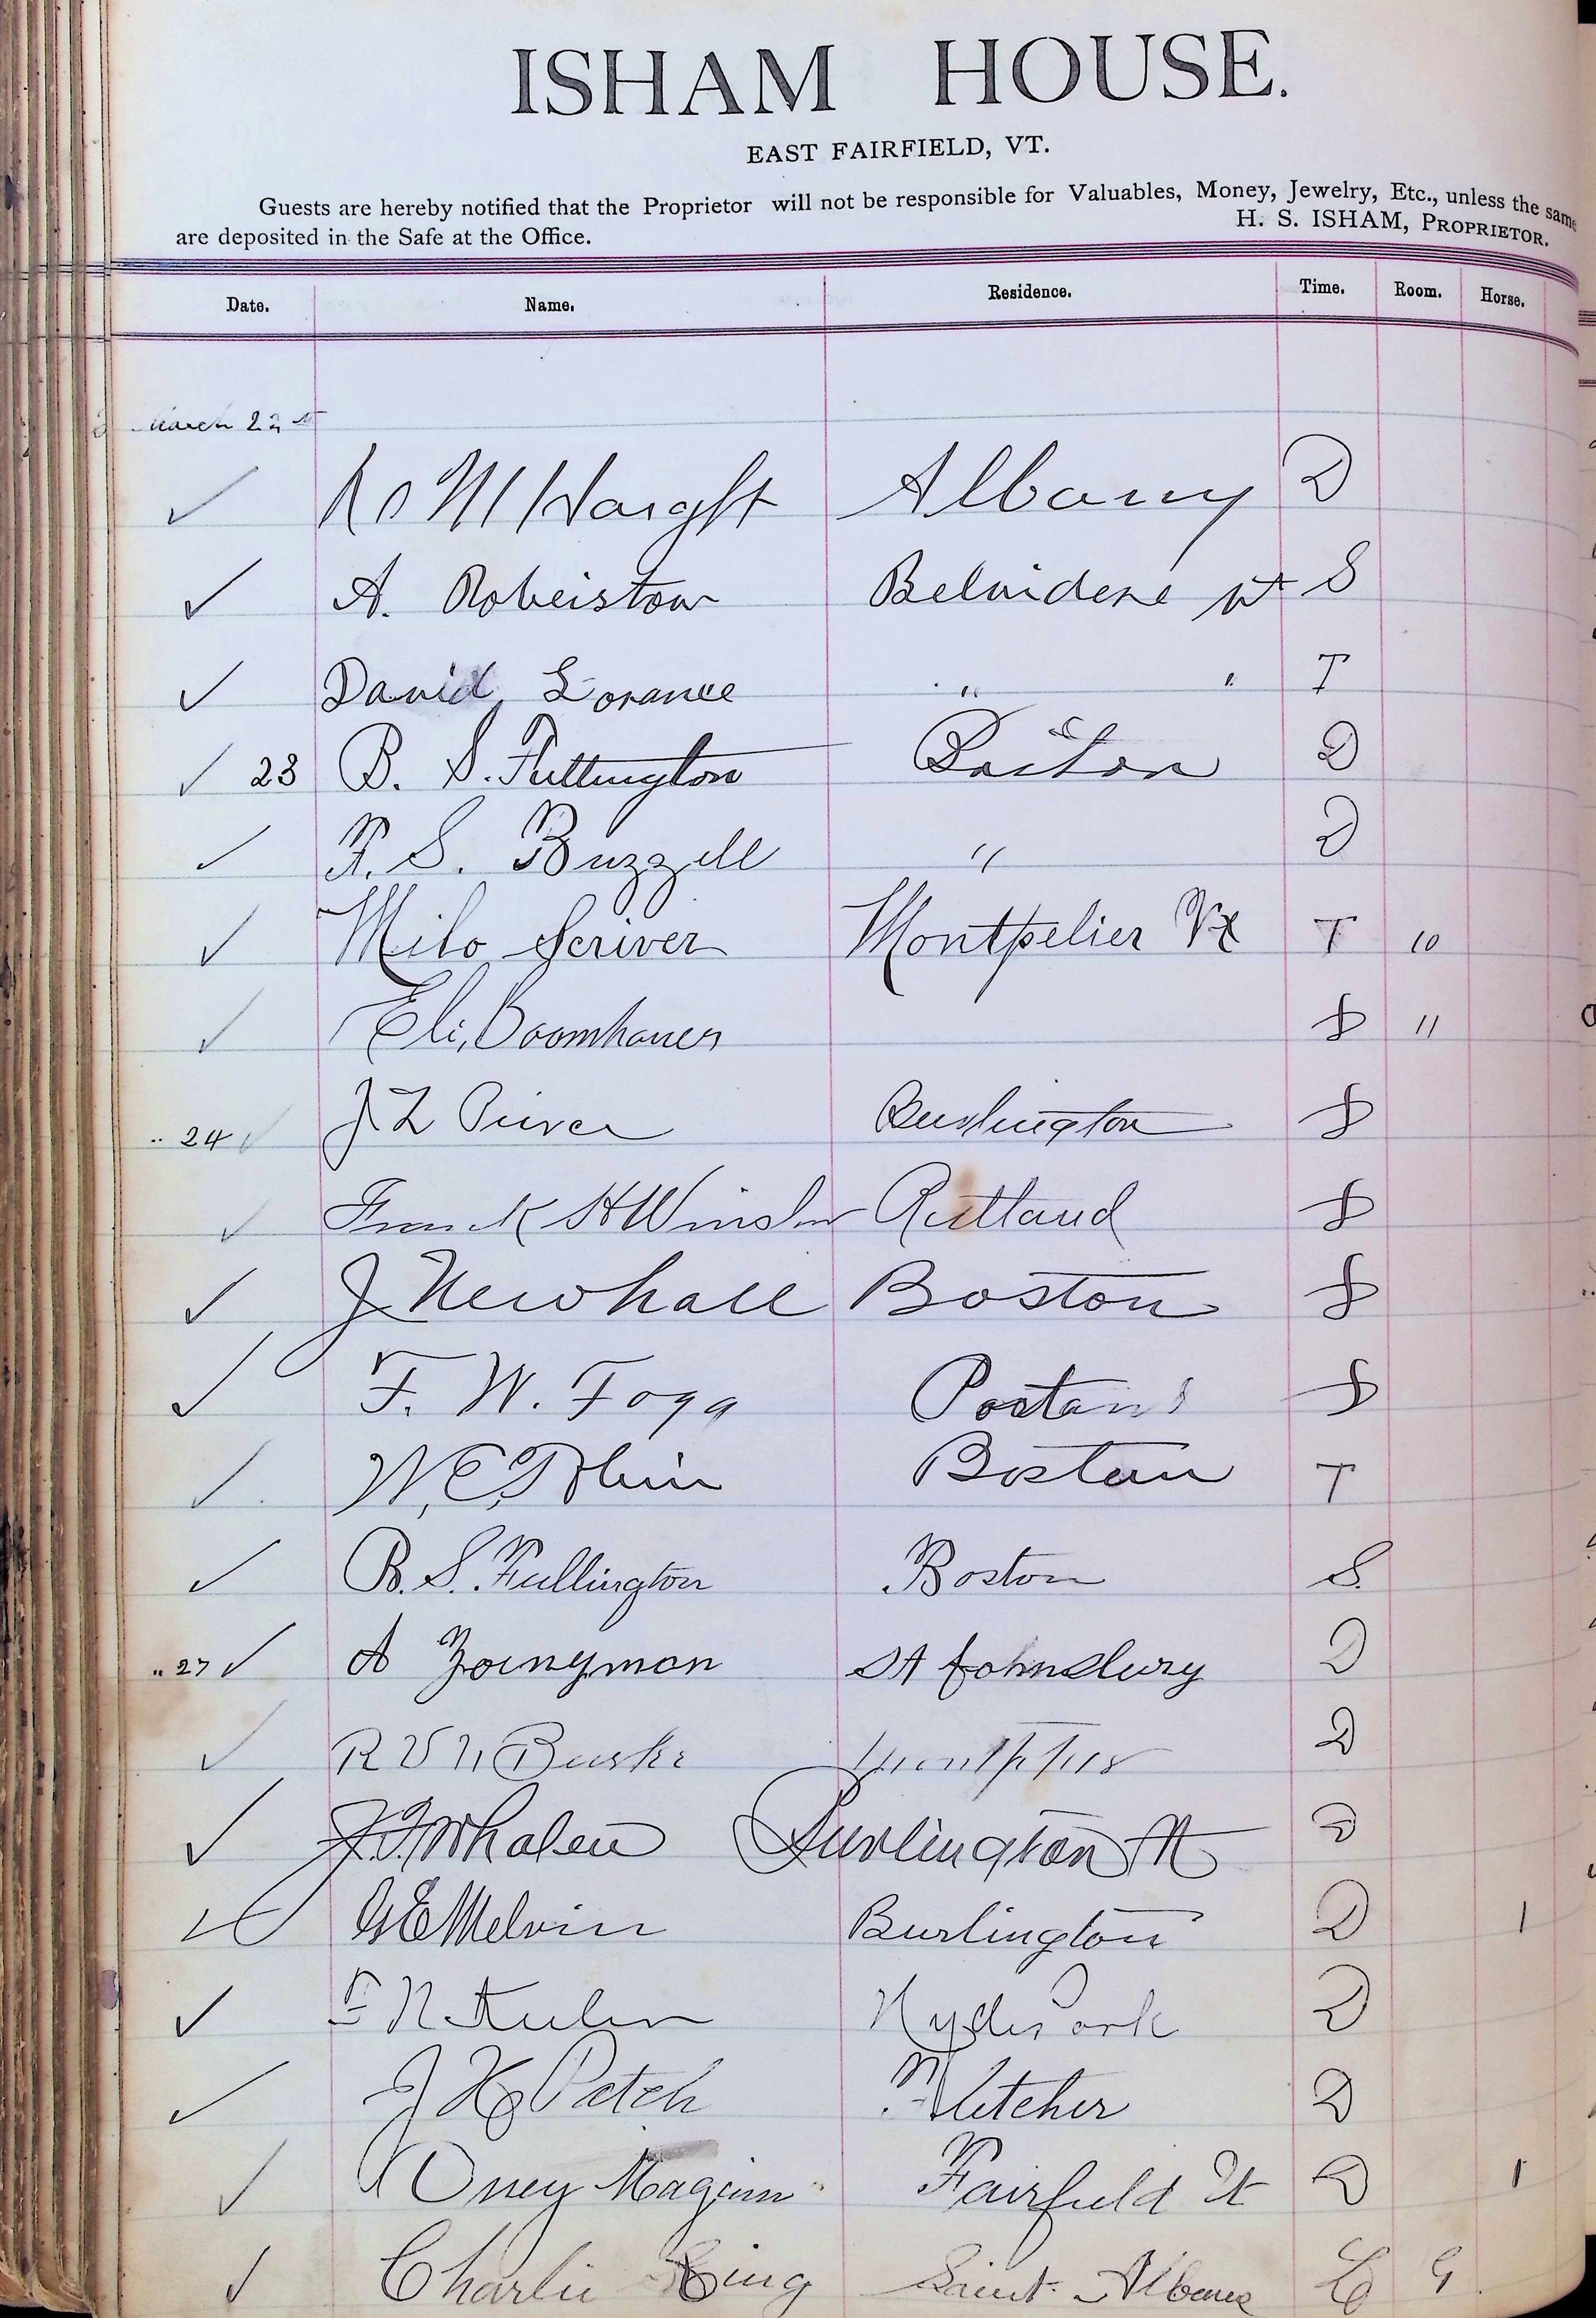 ISHAM HOUSE.
EAST FAIRFIELD, VT.
Guests are hereby notified that the Proprietor will not be responsible for Valuables, Money, Jewelry, Etc., unless the same
are deposited in the Safe at the Office. H. S. ISHAM, PROPRIETOR.
Date. Name. Residence. Time. Room. Horse.
March 22
Haight Albany D
A. Belvidere Vt S
David Lorance " " T
23 B. S. Fullington Boston D
F. S. Buzzell " D
Milo Scriver Montpelier Vt T 10
Eli Boomhauer S 11
.. 24 J L Burlington S
Frank H Winslow Rutland S
J Newhall Boston S
F. W. Fogg Boston S
W. E. Tobin Boston T
B. S. Fullington Boston S.
.. 27 A Youngman St Johnsbury D
R Burke D
Whalen Burlington Vt D
G E Melvin Burlington D 1
N Hyde Park D
J H Patch Fletcher D
Oney Maginn Fairfield Vt D 1
Charlie King Saint Albans L 9